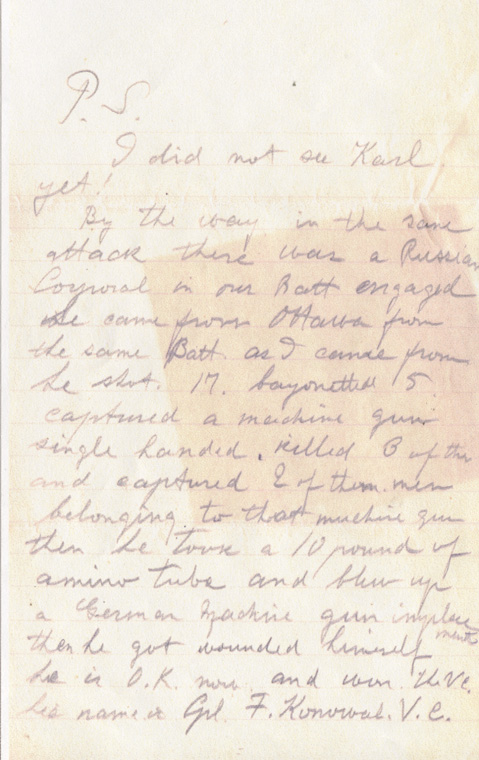 P.S.
I did not see Karl
yet!
By the way in the same
attack there was a Russian
Corporal in our Batt engaged
He came from Ottawa from
the same Batt. as I came from
he shot. 17. bayonetted 5
captured a machine gun
single handed. killed 6 of the
and captured 2 of them. men
belonging to that machine gun
then he took a 10 pound of
amino tube and blew up
a German Machine gun implacement
then he got wounded himself
he is O.K. now and won the V.C.
his name is Cpl. F. Konowal. V.C.